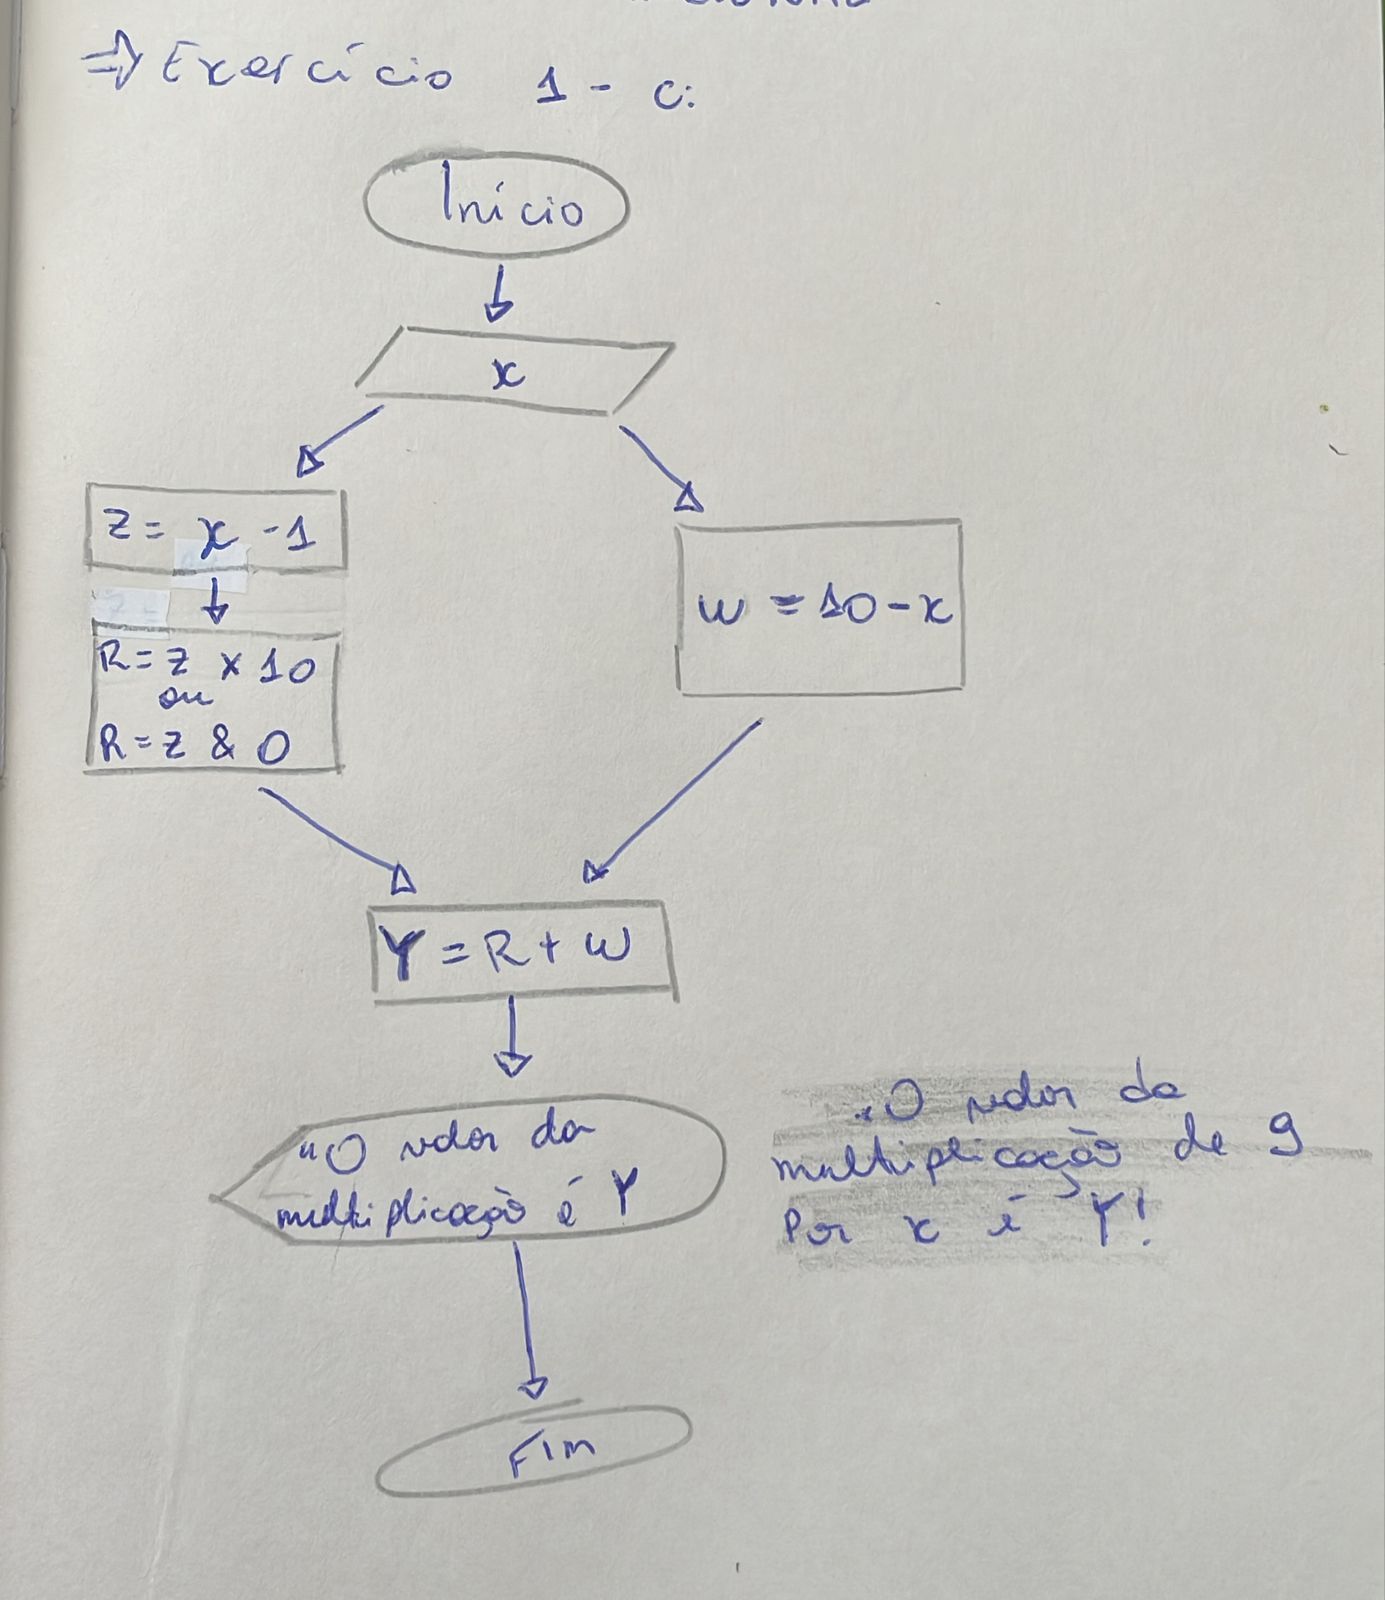 ⇒ Exercício 1 - c:
Início
x
Z = x - 1
R = Z x 10
ou
R = Z & 0
W = 10 - x
Y = R + W
"O valor da
multiplicação é Y
"O valor da
multiplicação de 9
Por x é Y!
Fim